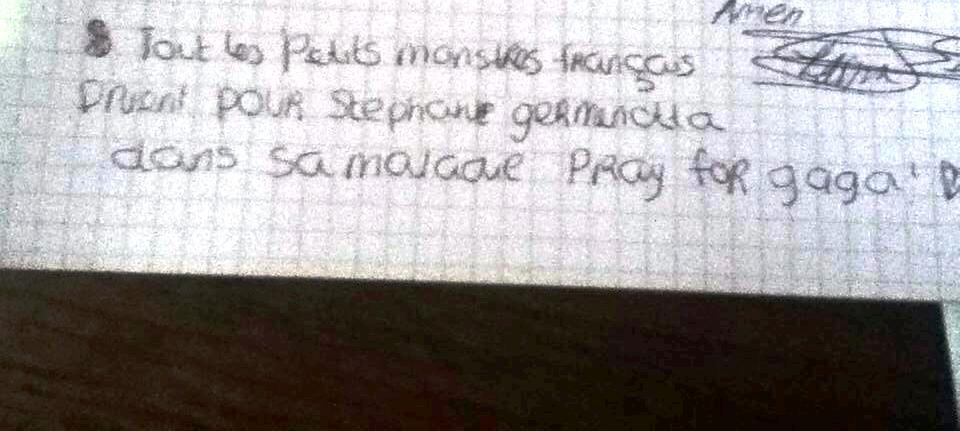 Amen
Tout les Petits monstres français
Prient pour Stephanie germanotta
dans sa maladie PRay foR gaga'